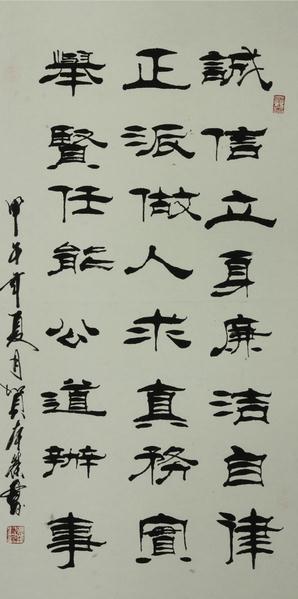 誠信立身廉洁自律
正派做人求真務實
舉賢任能公道辦事
甲午年夏月賀